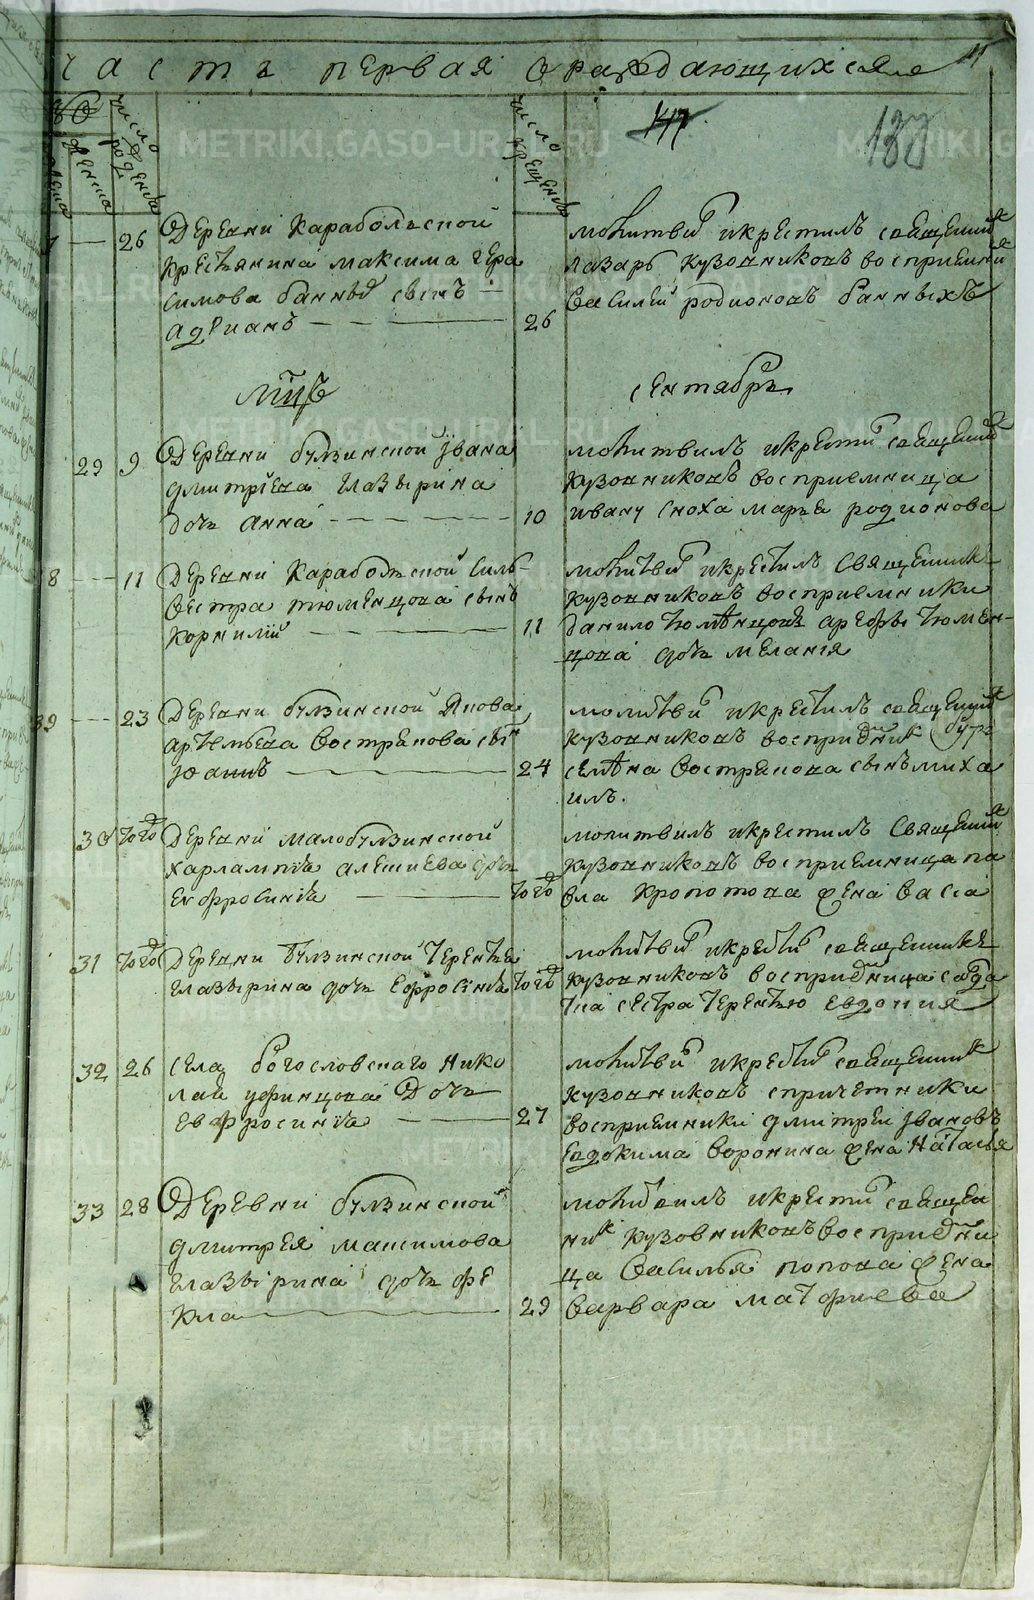 часть первая о раждающихся
число рожденiя
число крещенiя
26 Деревни Карабольской
крестьянина Максима Гера
симова Банныхъ сынъ
Адрианъ 26
молитвилъ и крестилъ священникъ
Лазарь Кузовниковъ восприемникъ
Василий Родионовъ Банныхъ
мць сентябрь
29 9 Деревни Булзинской Iвана
Дмитрiева Глазырина
дочь Анна 10
молитвилъ и крестил священник
Кузовниковъ восприемница
Ивану сноха Марья Родионова
8 11 Деревни Карабольской Силь-
вестра Тюменцова сынъ
Корнилiй 11
молитвил и крестилъ священникъ
Кузовниковъ восприемники
Данило Тюменцовъ Арефы Тюмен-
цова дочь Меланiя
39 23 Деревни Булзинской Якова
Артемьева Вострякова сынъ
Iоаннъ 24
молитвил и крестилъ священникъ
Кузовниковъ восприемник
Семена Вострякова сынъ Миха
илъ.
30 того Деревни Малобулзинской
Харлампiя Алешиева дочь
Енфросинiя того
молитвилъ и крестилъ священник
Кузовниковъ восприемница Па
вла Кропотова жена Васса
31 того Деревни Булзинской Терентья
Глазырина дочь Ефросiнiя того
молитвил и крестил священникъ
Кузовниковъ восприемница солда
тка сестра Терентью Евдокия
32 26 села Богословскаго Нико
лая Уфинцова дочь
Евфросинiя 27
молитвил и крестил священник
Кузовниковъ с причетники
восприемники Дмитрей Iвановъ
Евдокима Воронина жена Наталья
33 28 Деревни Булзинской
Дмитрея Максимова
Глазырина дочь Фе
кла 29
молитвилъ и крестил священ
ник Кузовниковъ восприемни
ца Василья Попова жена
Варвара Матфиева